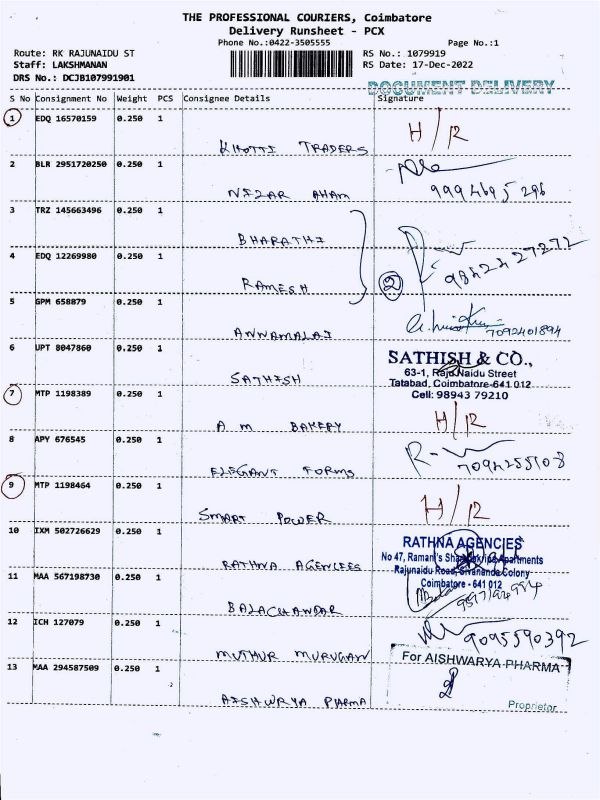 THE PROFESSIONAL COURIERS, Coimbatore
Delivery Runsheet - PCX
Phone No.:0422-3505555 Page No.:1
Route: RK RAJUNAIDU ST RS No.: 1079919
Staff: LAKSHMANAN RS Date: 17-Dec-2022
DRS No.: DCJB107991901
DOCUMENT DELIVERY
S No Consignment No Weight PCS Consignee Details Signature
1 EDQ 16570159 0.250 1
H/R
TRADERS
2 BLR 2951720250 0.250 1
9994695296
NIZAR AHAM
3 TRZ 145663496 0.250 1
BHARATHI
4 EDQ 12269980 0.250 1
RAMESH 2 9842427272
5 GPM 658879 0.250 1
ANNAMALAI 7092401894
6 UPT 8047860 0.250 1
SATHISH & CO.,
63-1, Raju Naidu Street
SATHISH Tatabad, Coimbatore-641 012
7 MTP 1198389 0.250 1 Cell: 98943 79210
A M BAKERY H/R
8 APY 676545 0.250 1
ELEGANT FORMS
9 MTP 1198464 0.250 1
SMART POWER H/R
10 IXM 502726629 0.250 1
RATHNA AGENCIES
No 47, Ramani's Apartments
RATHNA AGENCIES Rajunaidu Road, Sivananda Colony
11 MAA 567198730 0.250 1 Coimbatore - 641 012
BALACHANDAR
12 ICH 127079 0.250 1
9095590392
MUTHUR MURUGAN
For AISHWARYA PHARMA
13 MAA 294587509 0.250 1
AISHWRYA PHARMA Proprietor